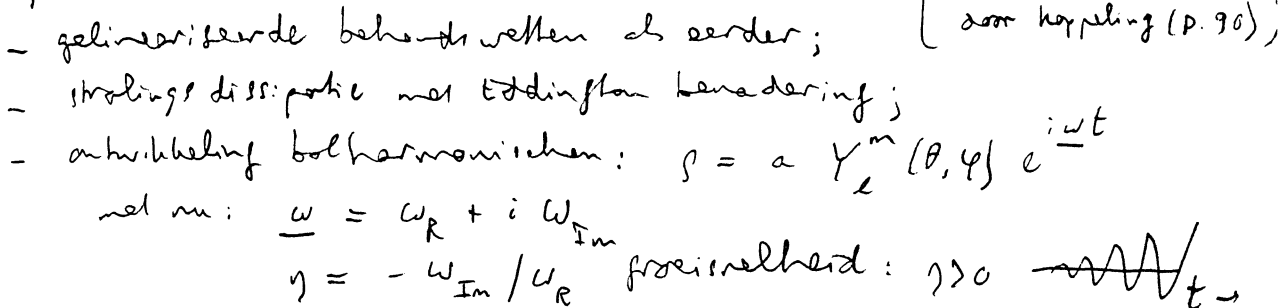 - gelineariseerde behoudswetten als eerder; [ door koppeling (p. 90);
- stralingsdissipatie met Eddington benadering;
- ontwikkeling bolharmonischen: ρ = a Y_l^m (θ, φ) e^{iωt}
met nu: ω = ω_R + i ω_Im
η = - ω_Im / ω_R groeisnelheid: η>0 t →